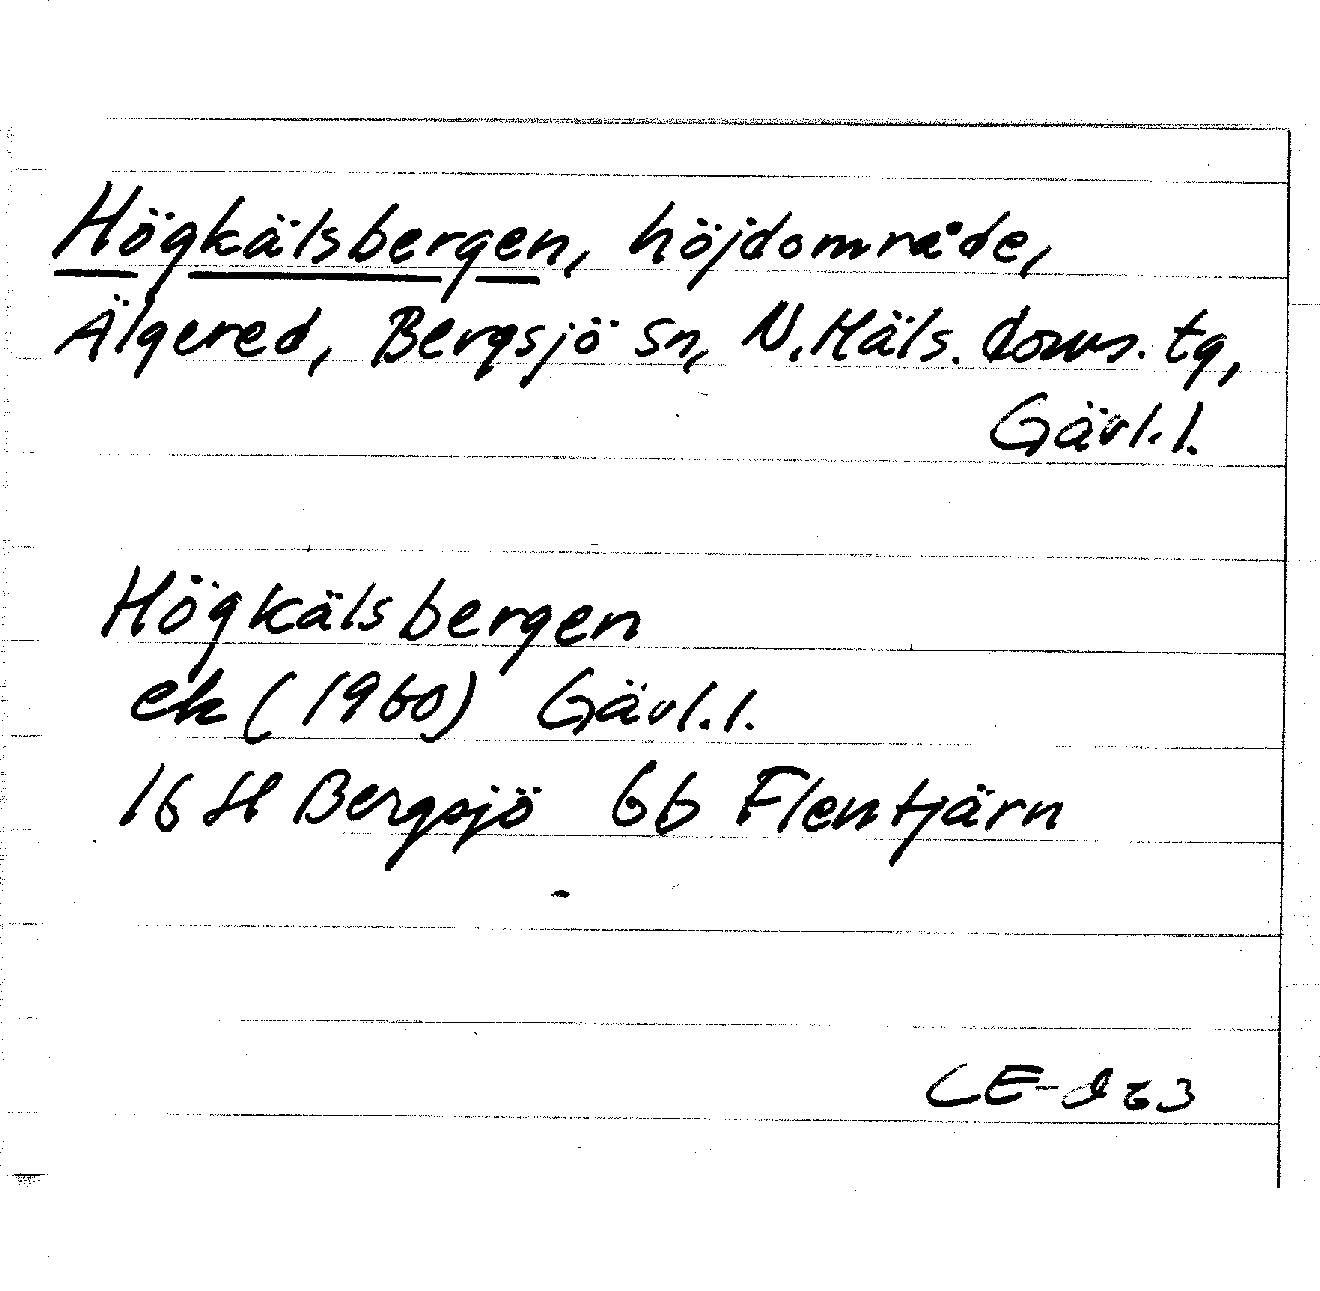 Högkälsbergen, höjdområde,
Älgered, Bergsjö sn, N. Häls. doms. tg,
Gävl. l.
Högkälsbergen
ek (1960) Gävl. l.
16 H Bergsjö 6b Flentjärn